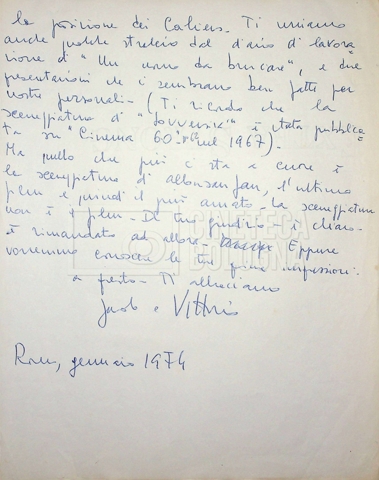 la posizione dei Cahiers. Ti uniamo
anche qualche stralcio dal diario di lavora
zione di "Un uomo da bruciare", e due
presentazioni che ci sembrano ben fatte per
nostre personali. (Ti ricordo che la
sceneggiatura di "Sovversivi" è stata pubblica
ta su "Cinema 60" nel 1967).
Ma quello che più ci sta a cuore è
la sceneggiatura di Allonsanfan, l'ultimo
film e quindi il più amato. La sceneggiatura
non è il film. Il tuo giudizio, è chiaro,
è rimandato ad allora. Eppure
vorremmo conoscere le tue prime impressioni.
a presto. Ti abbracciamo
e Vittorio
Roma, gennaio 1974
CINETECA
BOLOGNA